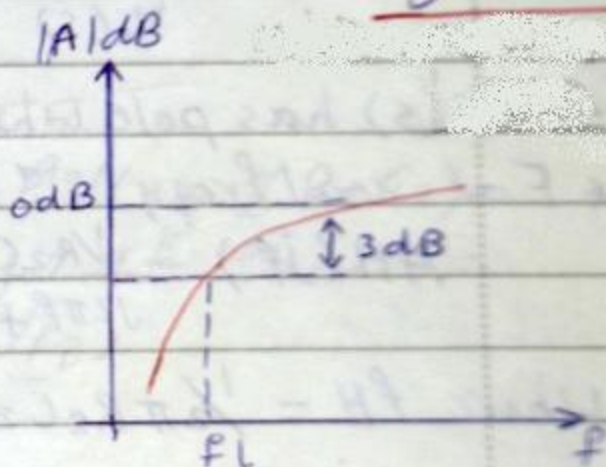 |A|dB
0dB
3dB
fL
f